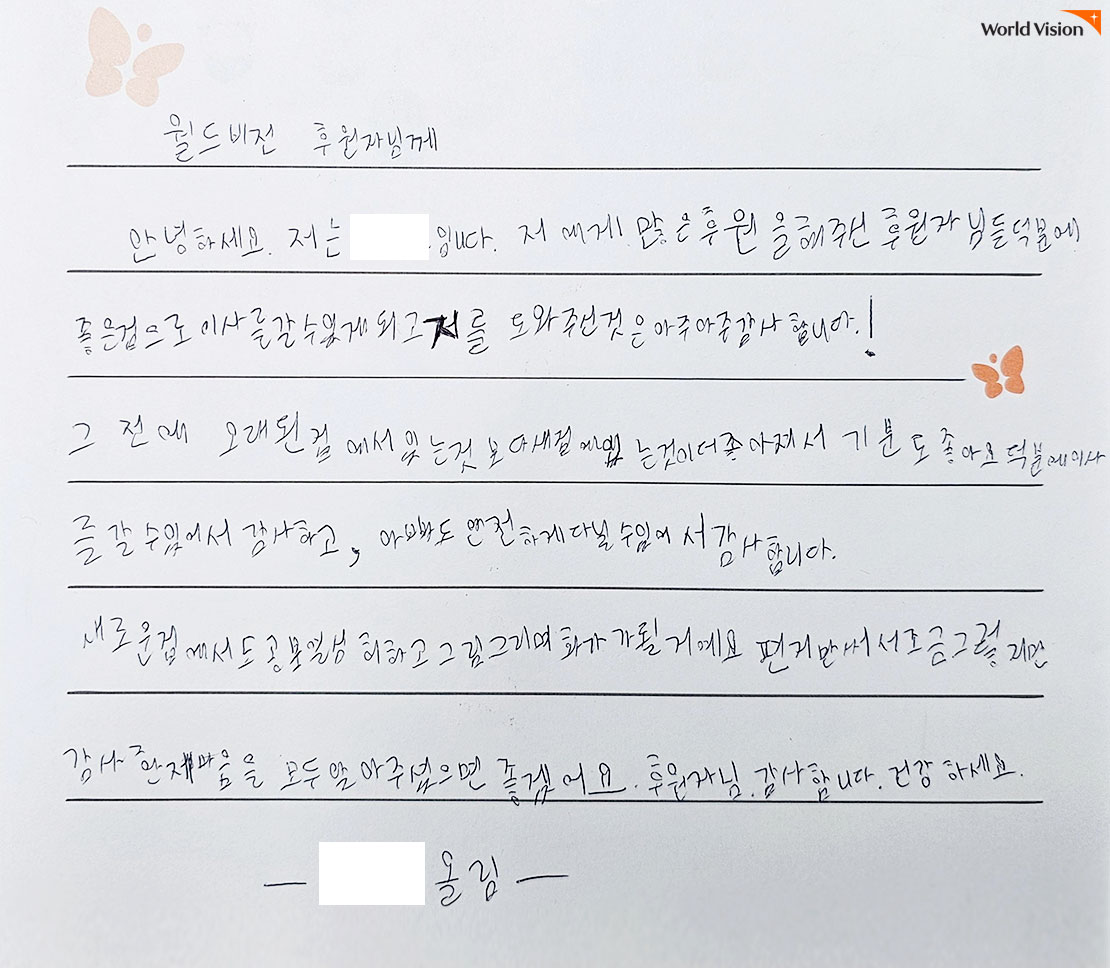 World Vision
월드비전 후원자님께
안녕하세요. 저는 입니다. 저에게 많은 후원을 해주신 후원자님들 덕분에
좋은 집으로 이사를 갈 수 있게 되고 저를 도와주신 것은 아주아주 감사합니다.!
그 전에 오래된 집에서 있는 것보다 새집에 있는 것이 더 좋아져서 기분도 좋아요 덕분에 이사
를 갈 수 있어서 감사하고, 아빠도 안전하게 다닐 수 있어서 감사합니다.
새로운 집에서도 공부 열심히 하고 그림 그리며 화가가 될 거예요 편지만 써서 조금 그렇지만
감사한 제 마음을 모두 알아주셨으면 좋겠어요. 후원자님. 감사합니다. 건강하세요.
— 올림 —